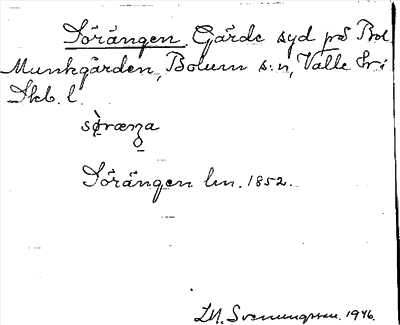 Sörängen. Gärde syd på Bol
Munkgården, Bolum s:n, Valle hr i
Skb. l.
sø̀ræŋa
Sörängen lm. 1852.
Svenungsson. 1946.